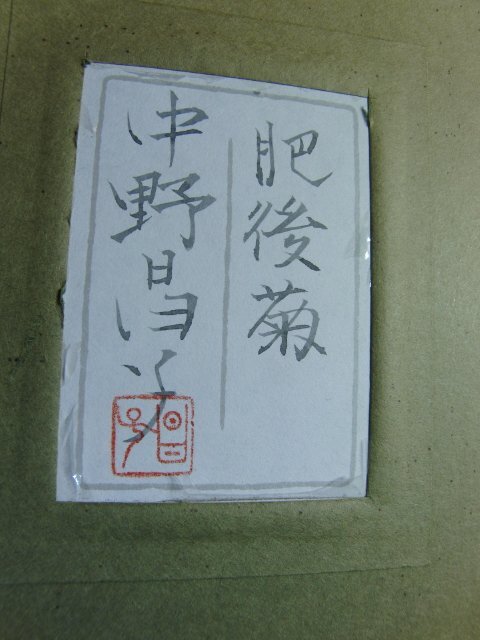 肥後菊
中野昌子